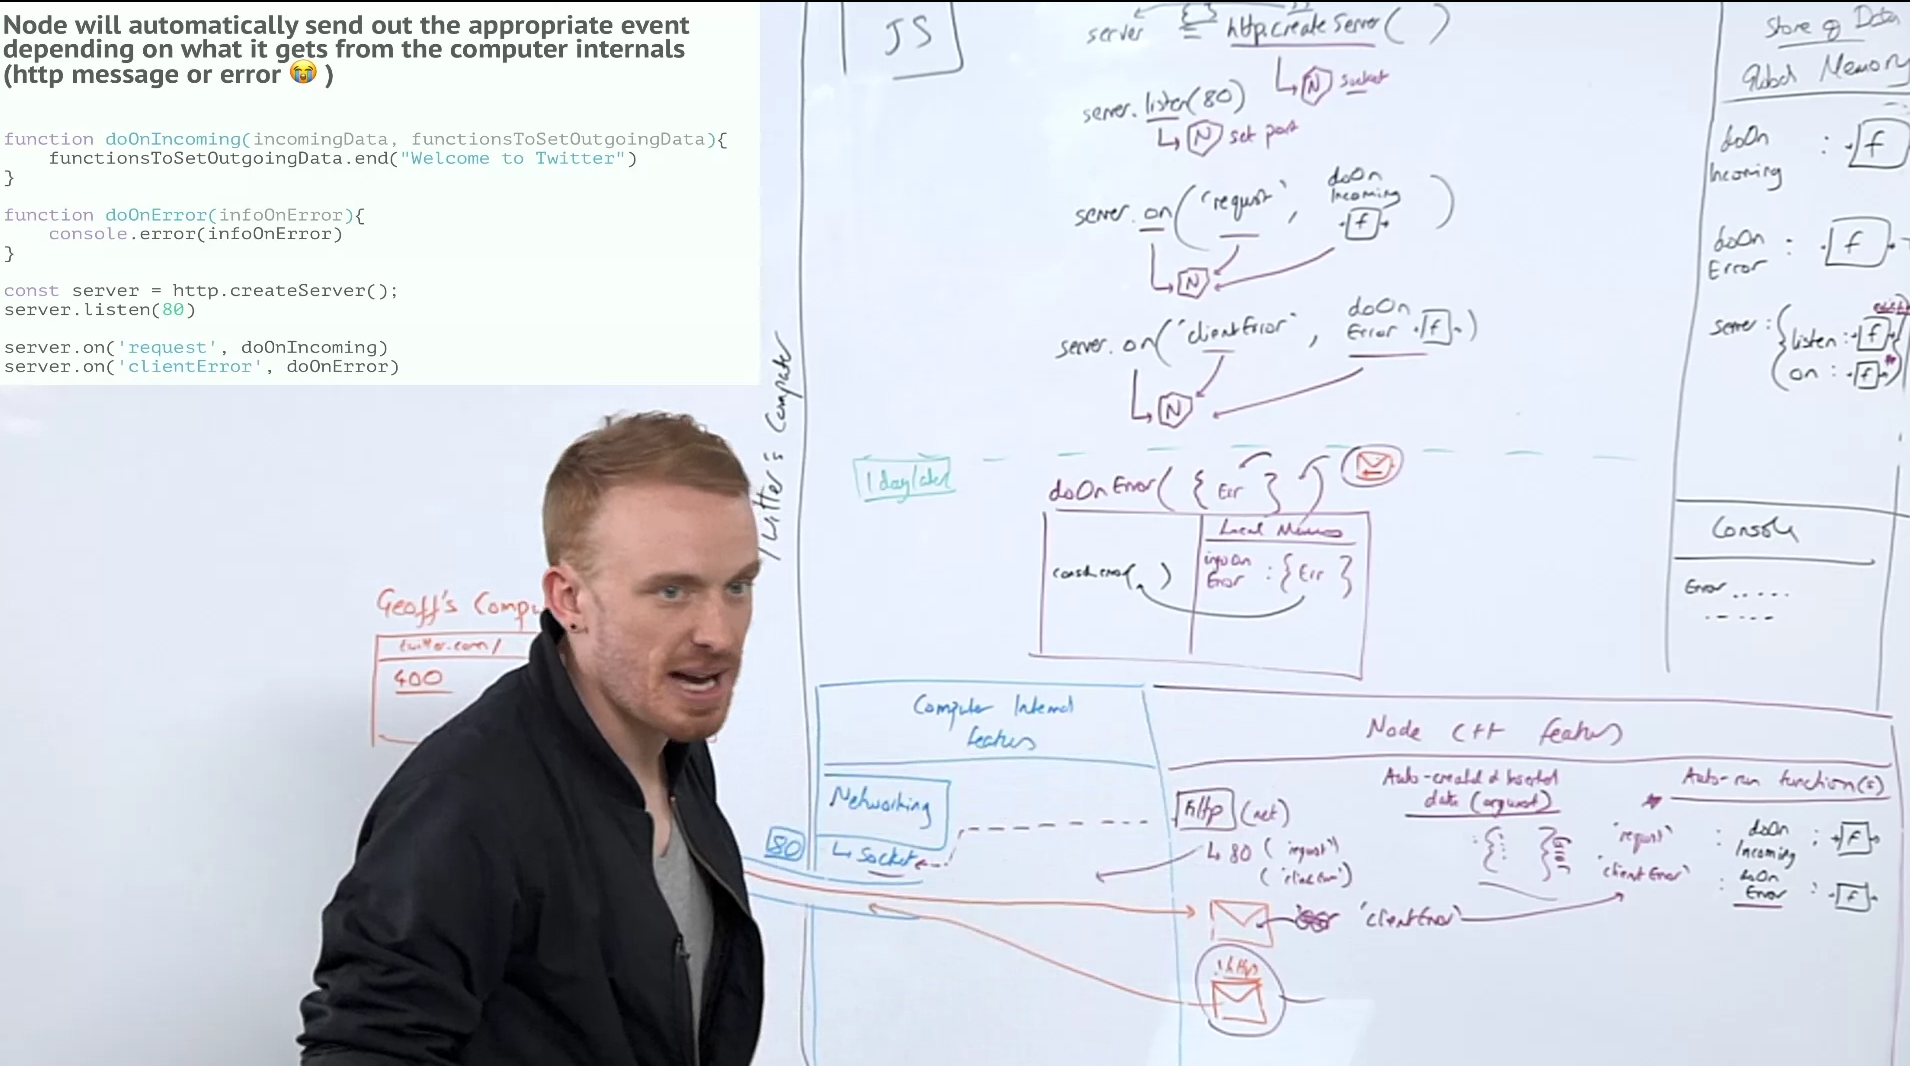 Node will automatically send out the appropriate event
depending on what it gets from the computer internals
(http message or error 😭 )
function doOnIncoming(incomingData, functionsToSetOutgoingData){
functionsToSetOutgoingData.end("Welcome to Twitter")
}
function doOnError(infoOnError){
console.error(infoOnError)
}
const server = http.createServer();
server.listen(80)
server.on('request', doOnIncoming)
server.on('clientError', doOnError)
JS
server = http.createServer( )
N socket
server.listen(80)
N set port
server.on('request', doOn
Incoming
f )
N
server.on('clientError', doOn
Error f )
N
1 day later
doOnError( { Err } )
Local
infoOn
Error : { Err }
Store of Data
Global Memory
doOn
Incoming : f
doOn
Error : f
server : { listen : f
on : f }
Console
Error .....
Twitter's Computer
Geoff's Compu
twitter.com/
400
Computer Internal
features
Networking
↳ Socket
80
Node C++ features
http (net)
↳ 80 ('request')
Auto-created & inserted
data (argument)
Auto-run function(s)
'request' : doOn
Incoming : f
'clientError' : doOn
Error : f
'clientError'